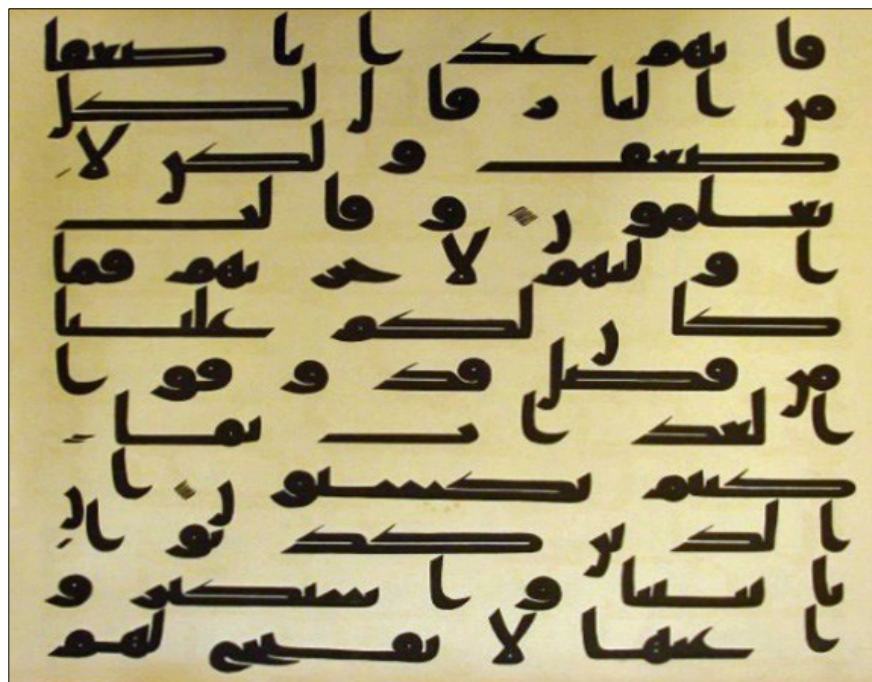 فاتهم عذابا ضعفا
من النار قال لكل
ضعف ولكن لا
تعلمون وقالت
اوليهم لاخريهم فما
كان لكم علينا
من فضل فذوقوا
العذاب بما
كنتم تكسبون ان
الذين كذبوا با
ياتنا واستكبرو
ا عنها لا تفتح لهم